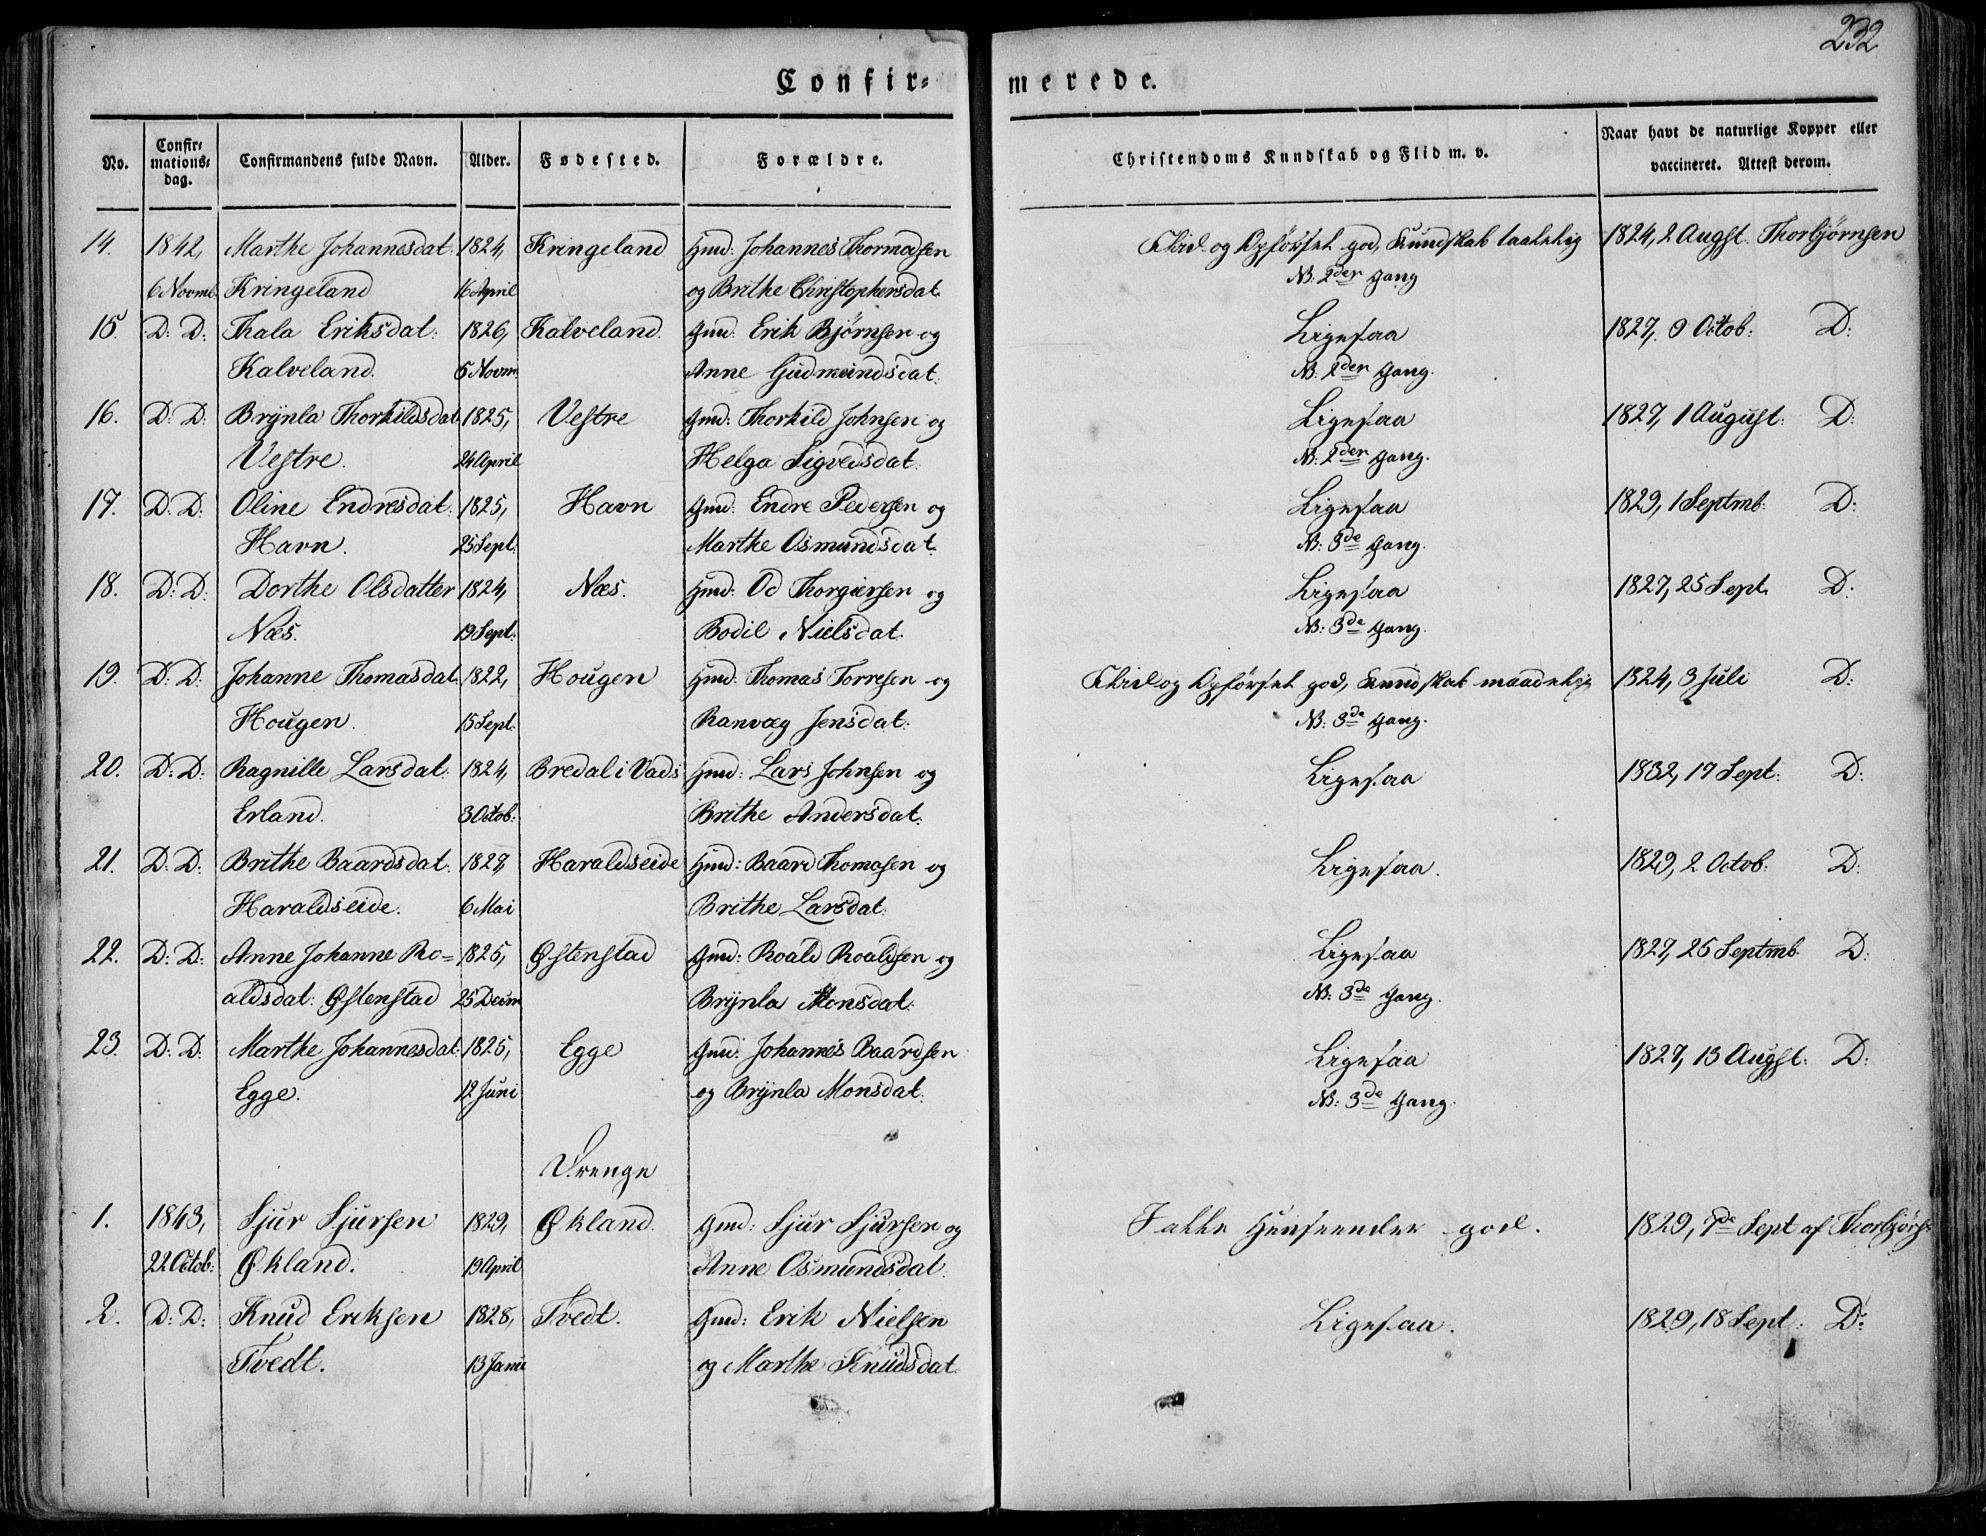 232
Confir= merede.
No. Confir= mations= dag. Confirmandens fulde Navn. Alder. Fødested. Forældre. Christendoms Kundskab og Flid m. v. Naar havt de naturlige Kopper eller vaccineret. Attest derom.
14. 1842, Marthe Johannesdat: 1824, Kringeland Gmd: Johannes Thormodsen Flid og Opførsel god, Kundskab taalelig 1824, 2 Augst. Thorbjørnsen
6 Novmb. Kringeland 16 April og Brithe Christophersdat. NB: 2der Gang
15. D: D: Thala Eriksdat: 1826, Kalveland. Gmd: Erik Bjørnsen og Ligesaa 1827, 9 Octob: D:
Kalveland. 5 Novm. Anne Gudmundsdat: NB: 2der Gang.
16. D: D: Brynla Thorkildsdat 1825, Vestre Gmd: Thorkild Johnsen og Ligesaa 1827, 1 August: D:
Vestre. 24 April Helga Sigvedsdat: NB: 2der Gang.
17. D: D: Oline Endresdat: 1825, Havn Gmd: Endre Pedersen og Ligesaa 1829, 1 Septmb: D:
Havn. 25 Sept: Marthe Osmundsdat. NB: 3de Gang.
18. D: D: Dorthe Olsdatter 1824, Næs. Hmd: Od Thorgiersen og Ligesaa 1827, 25 Sept. D:
Næs. 19 Sept: Bodil Nielsdat: NB: 3de Gang.
19. D: D: Johanne Thomasdat: 1822, Hougen Hmd: Thomas Torresen og Flid og Opførsel god, Kundskab maadelig 1824, 3 Juli D:
Hougen. 15 Sept: Ranvæg Jensdat: NB: 3de Gang.
20. D: D: Ragnille Larsdat: 1824, Bredal i Vads Hmd: Lars Johnsen og Ligesaa 1832, 17 Sept: D:
Erland. 3 Octob: Brithe Andersdat:
21. D: D: Brithe Baardsdat: 1827 Haraldseide Hmd: Baard Thomasen og Ligesaa. 1829, 2 Octob: D:
Haraldseide. 6 Mai Brithe Larsdat:
22. D: D: Anne Johanne Ro= 1825, Østenstad Gmd: Roald Roaldsen og Ligesaa 1827, 25 Septmb. D:
aldsdat: Østenstad 25 Decm Brynla Monsdat: NB: 3de Gang.
23. D: D: Marthe Johannesdat: 1825, Egge Gmd: Johannes Baardsen Ligesaa 1827, 13 Augst: D:
Egge. 12 Juni og Brynla Monsdat: NB: 3de Gang.
Drenge
1. 1843, Sjur Sjursen 1829, Økland. Gmd: Sjur Sjursen og I alle Henseender god. 1829, 7de Sept af Thorbjørs
22 Octob: Økland. 19 April Anne Osmundsdat:
2. D: D: Knud Eriksen 1828, Tvedt. Gmd: Erik Nielsen Ligesaa. 1829, 18 Sept: D:
Tvedt. 13 Janu og Marthe Knudsdat.